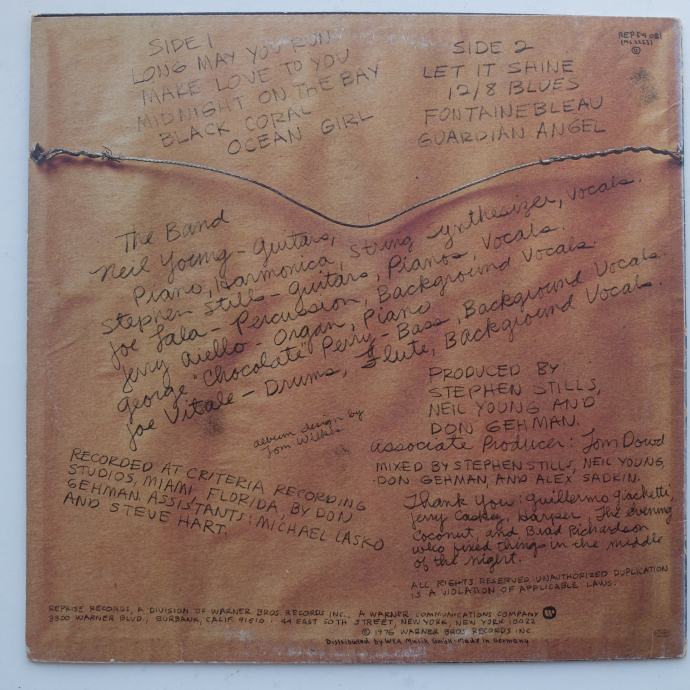 SIDE 1
LONG MAY YOU RUN
MAKE LOVE TO YOU
MIDNIGHT ON THE BAY
BLACK CORAL
OCEAN GIRL
SIDE 2
LET IT SHINE
12/8 BLUES
FONTAINEBLEAU
GUARDIAN ANGEL
REP 54 081
(MS 2253)
The Band
Neil Young - Guitars,
Piano, Harmonica, String Synthesizer, Vocals.
Stephen Stills - Guitars, Pianos, Vocals.
Joe Lala - Percussion, Background Vocals.
Jerry Aiello - Organ, Piano
George "Chocolate" Perry - Bass, Background Vocals.
Joe Vitale - Drums, Flute, Background Vocals.
album design by
Tom Wilkes
PRODUCED BY
STEPHEN STILLS,
NEIL YOUNG AND
DON GEHMAN.
Associate Producer: Tom Dowd
MIXED BY STEPHEN STILLS, NEIL YOUNG,
DON GEHMAN, AND ALEX SADKIN.
RECORDED AT CRITERIA RECORDING
STUDIOS, MIAMI FLORIDA, BY DON
GEHMAN. ASSISTANTS: MICHAEL LASKO
AND STEVE HART.
Thank You: Guillermo Giachetti,
Jerry Caskey, Harper, The evening
Coconut, and Brad Richardson
who fixed things in the middle
of the night.
ALL RIGHTS RESERVED UNAUTHORIZED DUPLICATION
IS A VIOLATION OF APPLICABLE LAWS.
REPRISE RECORDS, A DIVISION OF WARNER BROS RECORDS INC., A WARNER COMMUNICATIONS COMPANY
3300 WARNER BLVD., BURBANK, CALIF. 91510 · 44 EAST 50TH STREET, NEW YORK, NEW YORK 10022
© 1976 WARNER BROS RECORDS INC
Distributed by WEA Musik GmbH · Made in Germany